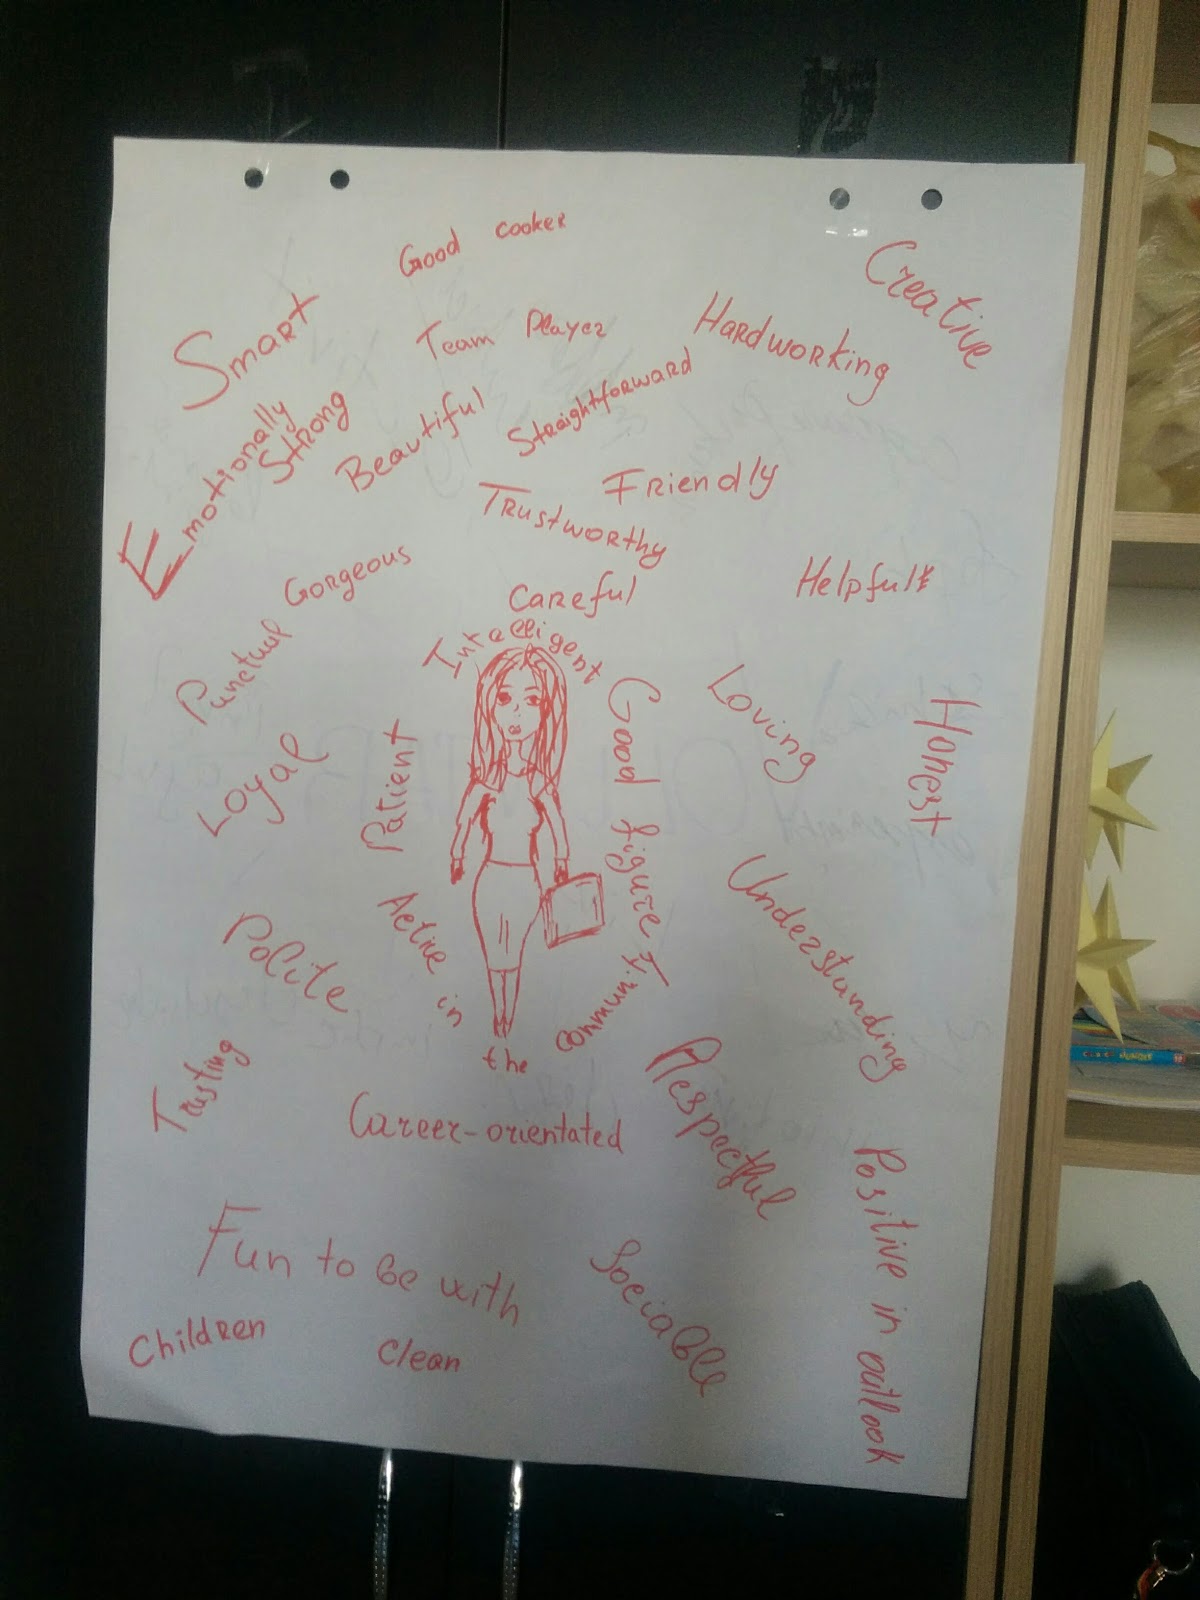 Good cooker
Creative
Smart
Team Player
Hardworking
Emotionally
Strong
Beautiful
Straightforward
Friendly
Trustworthy
Helpful
Gorgeous
Careful
Intelligent
Punctual
Good figure
Loving
Honest
Loyal
Patient
Understanding
Polite
Active in
the
community
Trusting
Respectful
Career-orientated
Positive in outlook
Fun to be with
Sociable
Children
Clean